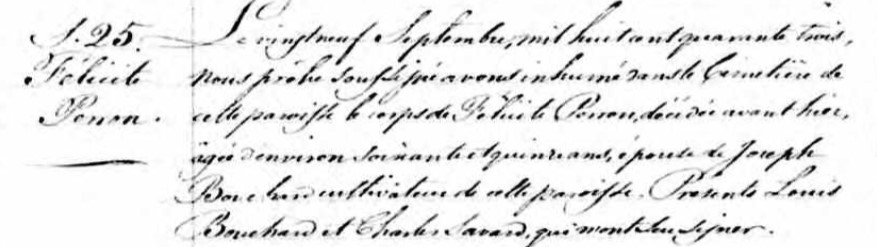 S. 25.
Félicité
Perron.
Le vingt neuf Septembre, mil huit cent quarante trois,
nous prêtre soussigné avons inhumé dans le Cimetière de
cette paroisse le corps de Félicité Perron, décédée avant hier,
âgée d'environ soixante et quinze ans, épouse de Joseph
Bouchard cultivateur de cette paroisse. Présents Louis
Bouchard et Charles Savard, qui n'ont su signer.